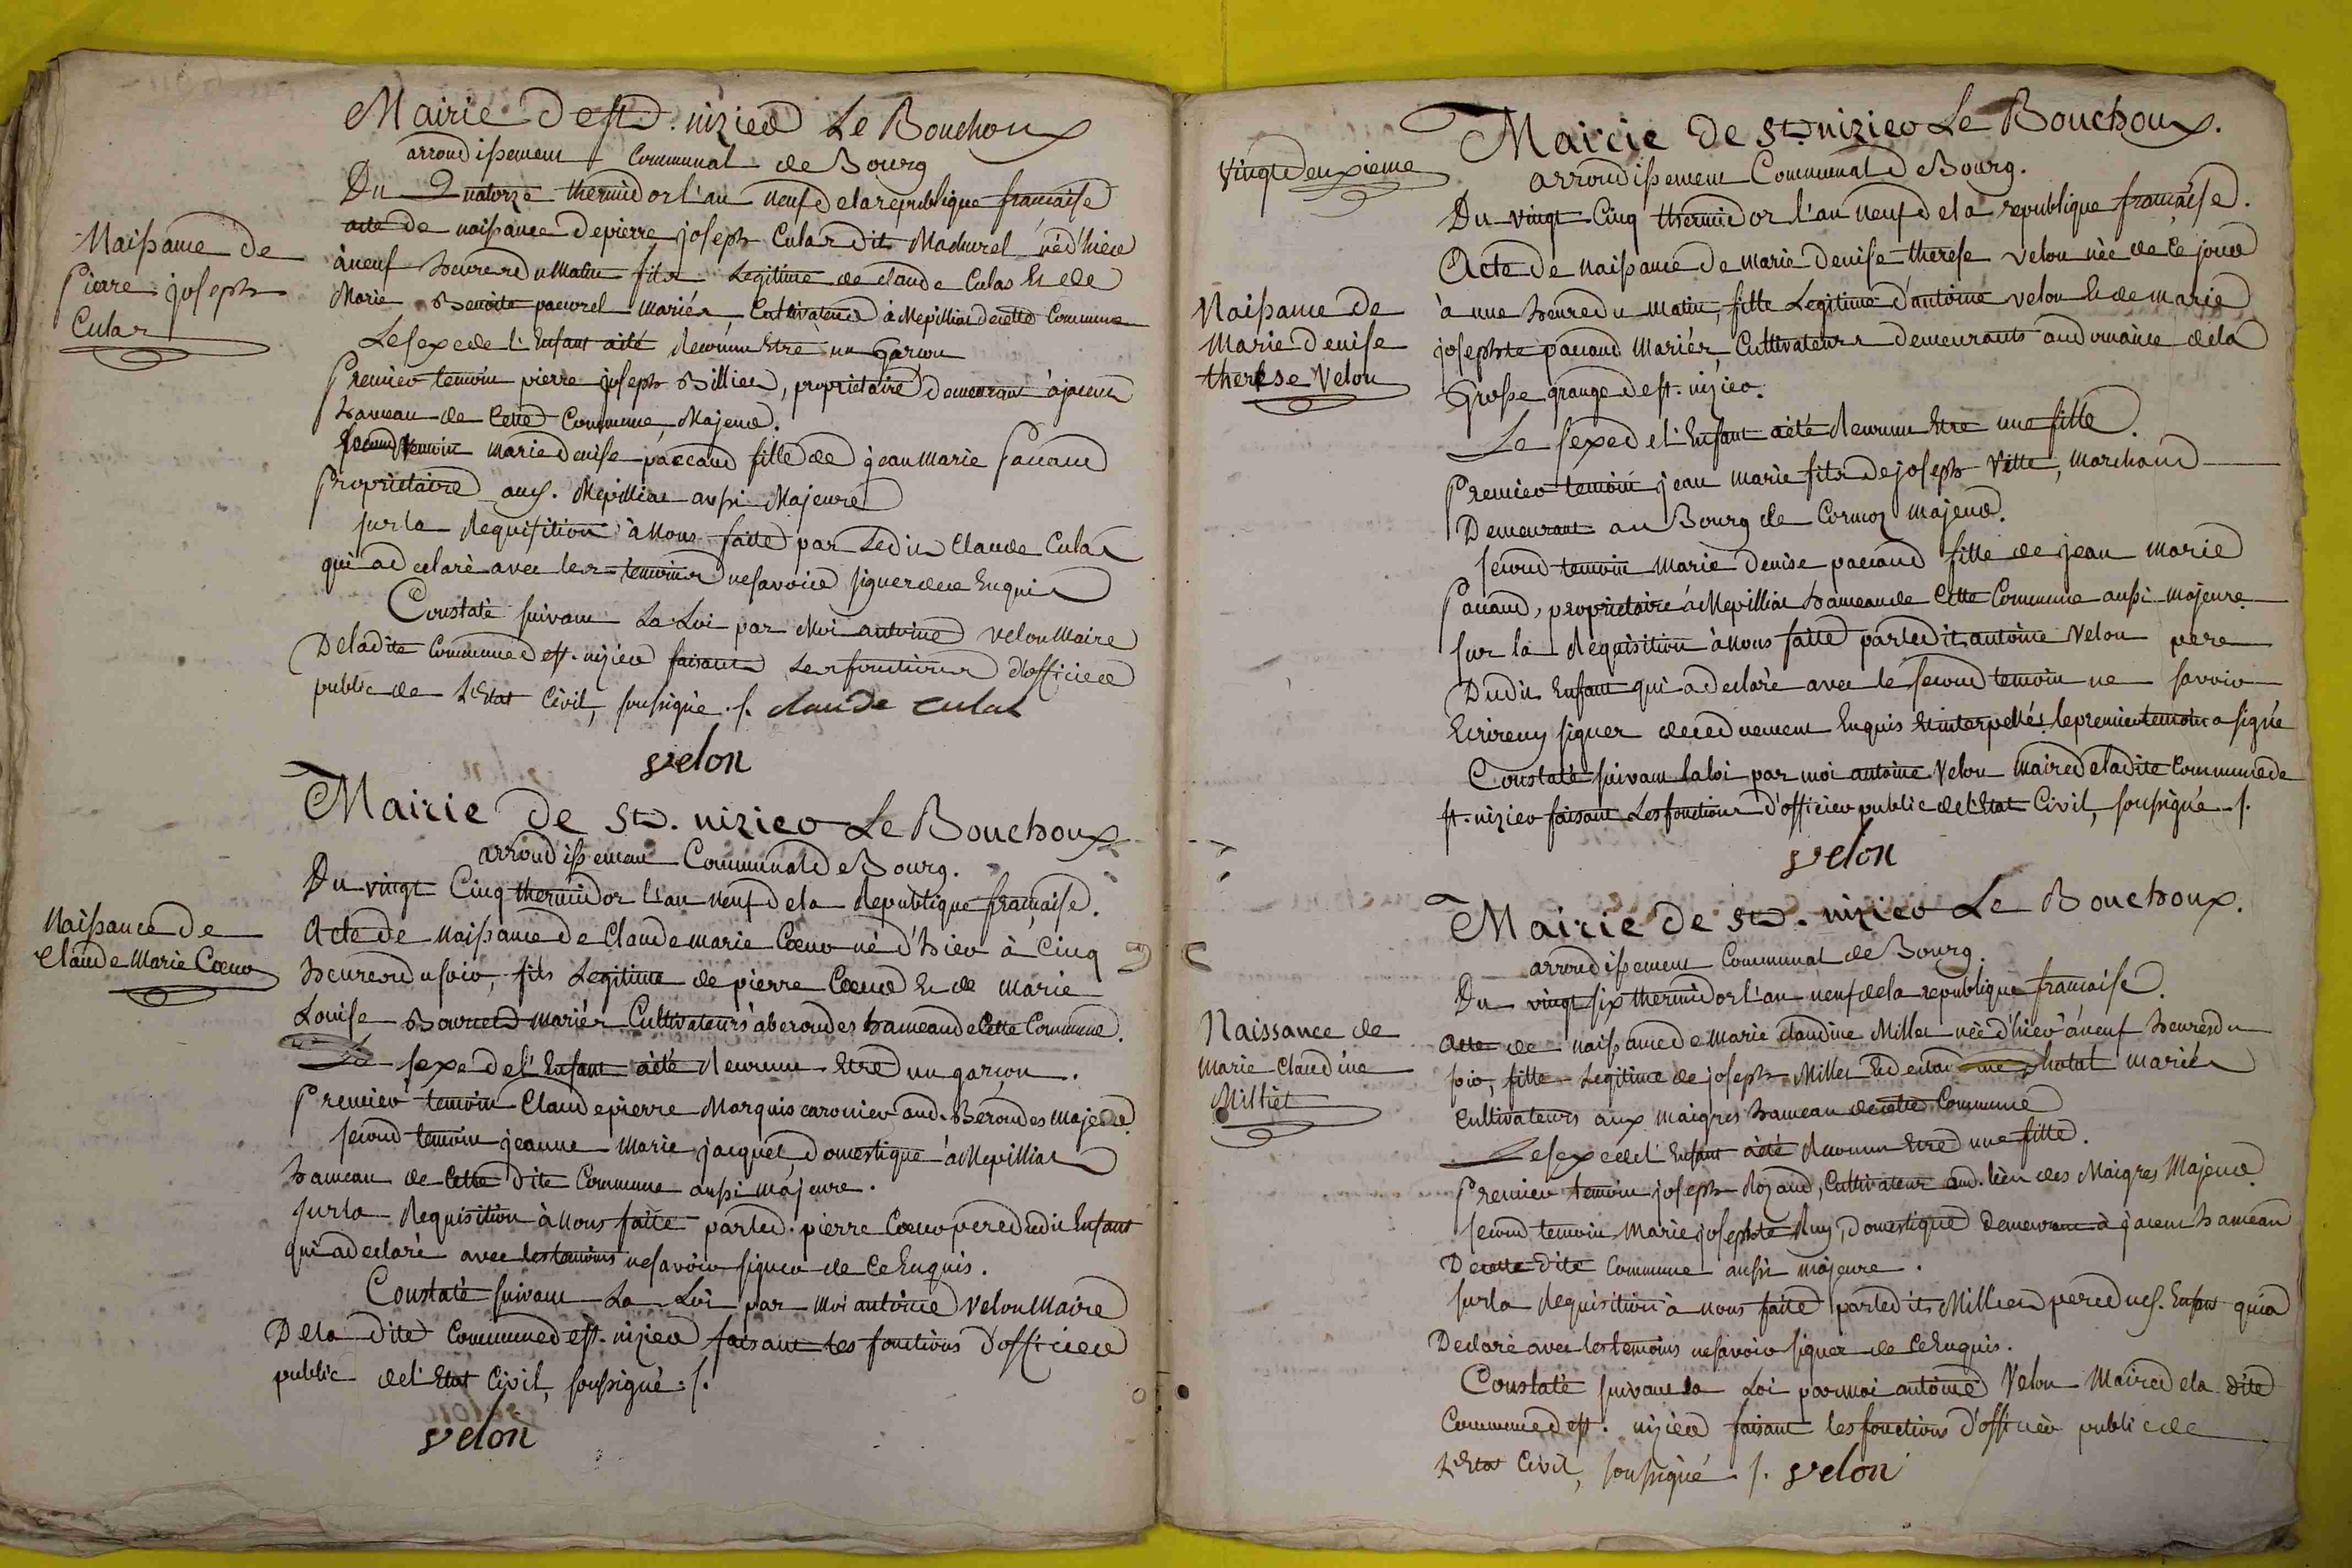 Mairie De st. nizier Le Bouchoux
arrondissement Communal de Bourg
Du Quatorze thermidor l'an neuf de la republique francaise
Naissance de
Pierre joseph
Cular
acte de naissance de pierre joseph Cular dit né d'hier
à neuf heures du Matin fils Legitime de claude Culas Et de
Marie Benoite mariés, Cultivateurs à Mepillias de cette Commune
Le sexe de l'Enfant a été Reconnu Etre un Garcon
Premier temoin pierre joseph Billier, proprietaire demeurant à jacem
hameau de Cette Commune, Majeur.
second temoin marie denise paccaud fille de jean Marie Paccaud
Proprietaire aud. Mepillias aussi Majeure
sur la Requisition à Nous faitte par Ledit Claude Cular
qui a declaré avec les temoins ne savoir signer de ce Enquis
Constaté suivant La Loi par Moi antoine velon Maire
De ladite Commune de st. nizier faisant Les fonctions d'officier
public de L'Etat Civil, soussigné ./. claude culas
velon
Mairie De St. nizier Le Bouchoux
arrondissement Communal de Bourg.
Du vingt Cinq thermidor l'an Neuf de la Republique francaise.
Naissance de
Claude Marie Cœur
Acte de Naissance de Claude marie Cœur né d'hier à Cinq
heures du soir, fils Legitime de pierre Cœur Et de Marie
Louise mariés Cultivateurs à berondes hameau de Cette Commune.
Le sexe de l'Enfant a été Reconnu Etre un garcon.
Premier temoin Claude pierre Marquis aud. Berondes majeur
second temoin jeanne Marie jacquet, domestique à Mepillias
hameau de Cette dite Commune aussi majeure.
sur la Requisition à Nous faite par led. pierre Cœur pere dudit Enfant
qui a declaré avec les temoins ne savoir signer de Ce Enquis.
Constaté suivant La Loi par Moi antoine Velon Maire
De la dite Commune de st. nizier faisant les fonctions d'officier
public de l'Etat Civil, soussigné ./.
velon
vingtdeuxieme
Mairie De St. nizier Le Bouchoux.
arrondissement Communal de Bourg.
Du vingt Cinq thermidor l'an neuf de la republique francaise.
Naissance de
Marie Denise
therese Velon
Acte de naissance de marie denise therese velon née de Ce jour
à une heure du matin, fille Legitime d'antoine velon Et de marie
josephte paccaud Mariés Cultivateurs demeurants au domaine de la
Grosse grange de st. nizier.
Le sexe de l'Enfant a été Reconnu Etre une fille.
Premier temoin jean marie fils de joseph Vitte, Marchand
Demeurant au Bourg de Cormoz majeur.
second temoin Marie Denise paccaud fille de jean Marie
Paccaud, proprietaire à Mepillias hameau de Cette Commune aussi majeure
sur la Requisition à Nous faitte par ledit antoine Velon pere
Dudit Enfant qui a declaré avec le second temoin ne savoir
Ecrire ny signer de ce duement Enquis Et interpellés, le premier temoin a signé
Constaté suivant la loi par moi antoine Velon Maire de ladite Commune de
st. nizier faisant Les fonctions d'officier public de l'Etat Civil, soussigné ./.
velon
Mairie De St. nizier Le Bouchoux.
arrondissement Communal de Bourg.
Du vingt six thermidor l'an neuf de la republique francaise.
Naissance de
Marie Claudine
Milliet
Acte de naissance de marie claudine Millet née d'hier à neuf heures du
soir, fille Legitime de joseph Millet Et de mariés
Cultivateurs aux maigres hameau de cette Commune
Le sexe de l'Enfant a été Reconnu Etre une fille.
Premier temoin joseph Rozand, Cultivateur aud. lieu des Maigres Majeur.
second temoin Marie josephte Ruy, domestique demeurant à jacem hameau
De cette dite Commune aussi majeure.
sur la Requisition à nous faite par ledit Millier pere dud. Enfant qui a
Declaré avec les temoins ne savoir signer de Ce Enquis.
Constaté suivant la Loi par moi antoine Velon Maire de la dite
Commune de st. nizier faisant les fonctions d'officier public de
L'Etat Civil, soussigné ./. velon